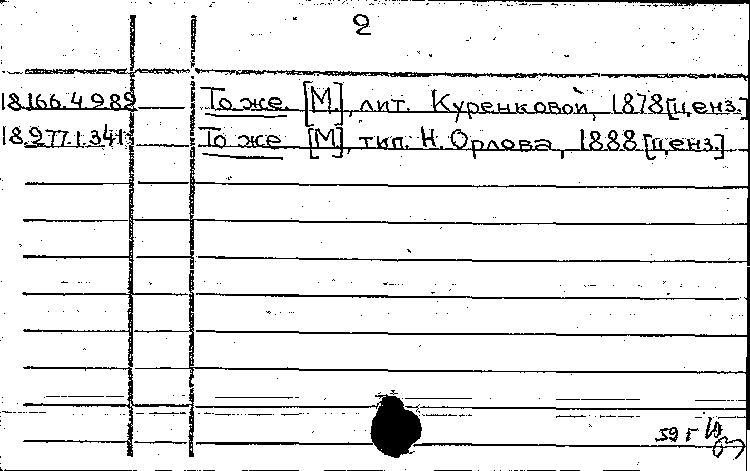 2
18.166.4.982 То же. [М.], лит. Куренковой, 1878 [ценз.]
18.977.1.341 То же [М], тип. Н. Орлова, 1888 [ценз.]
59 г